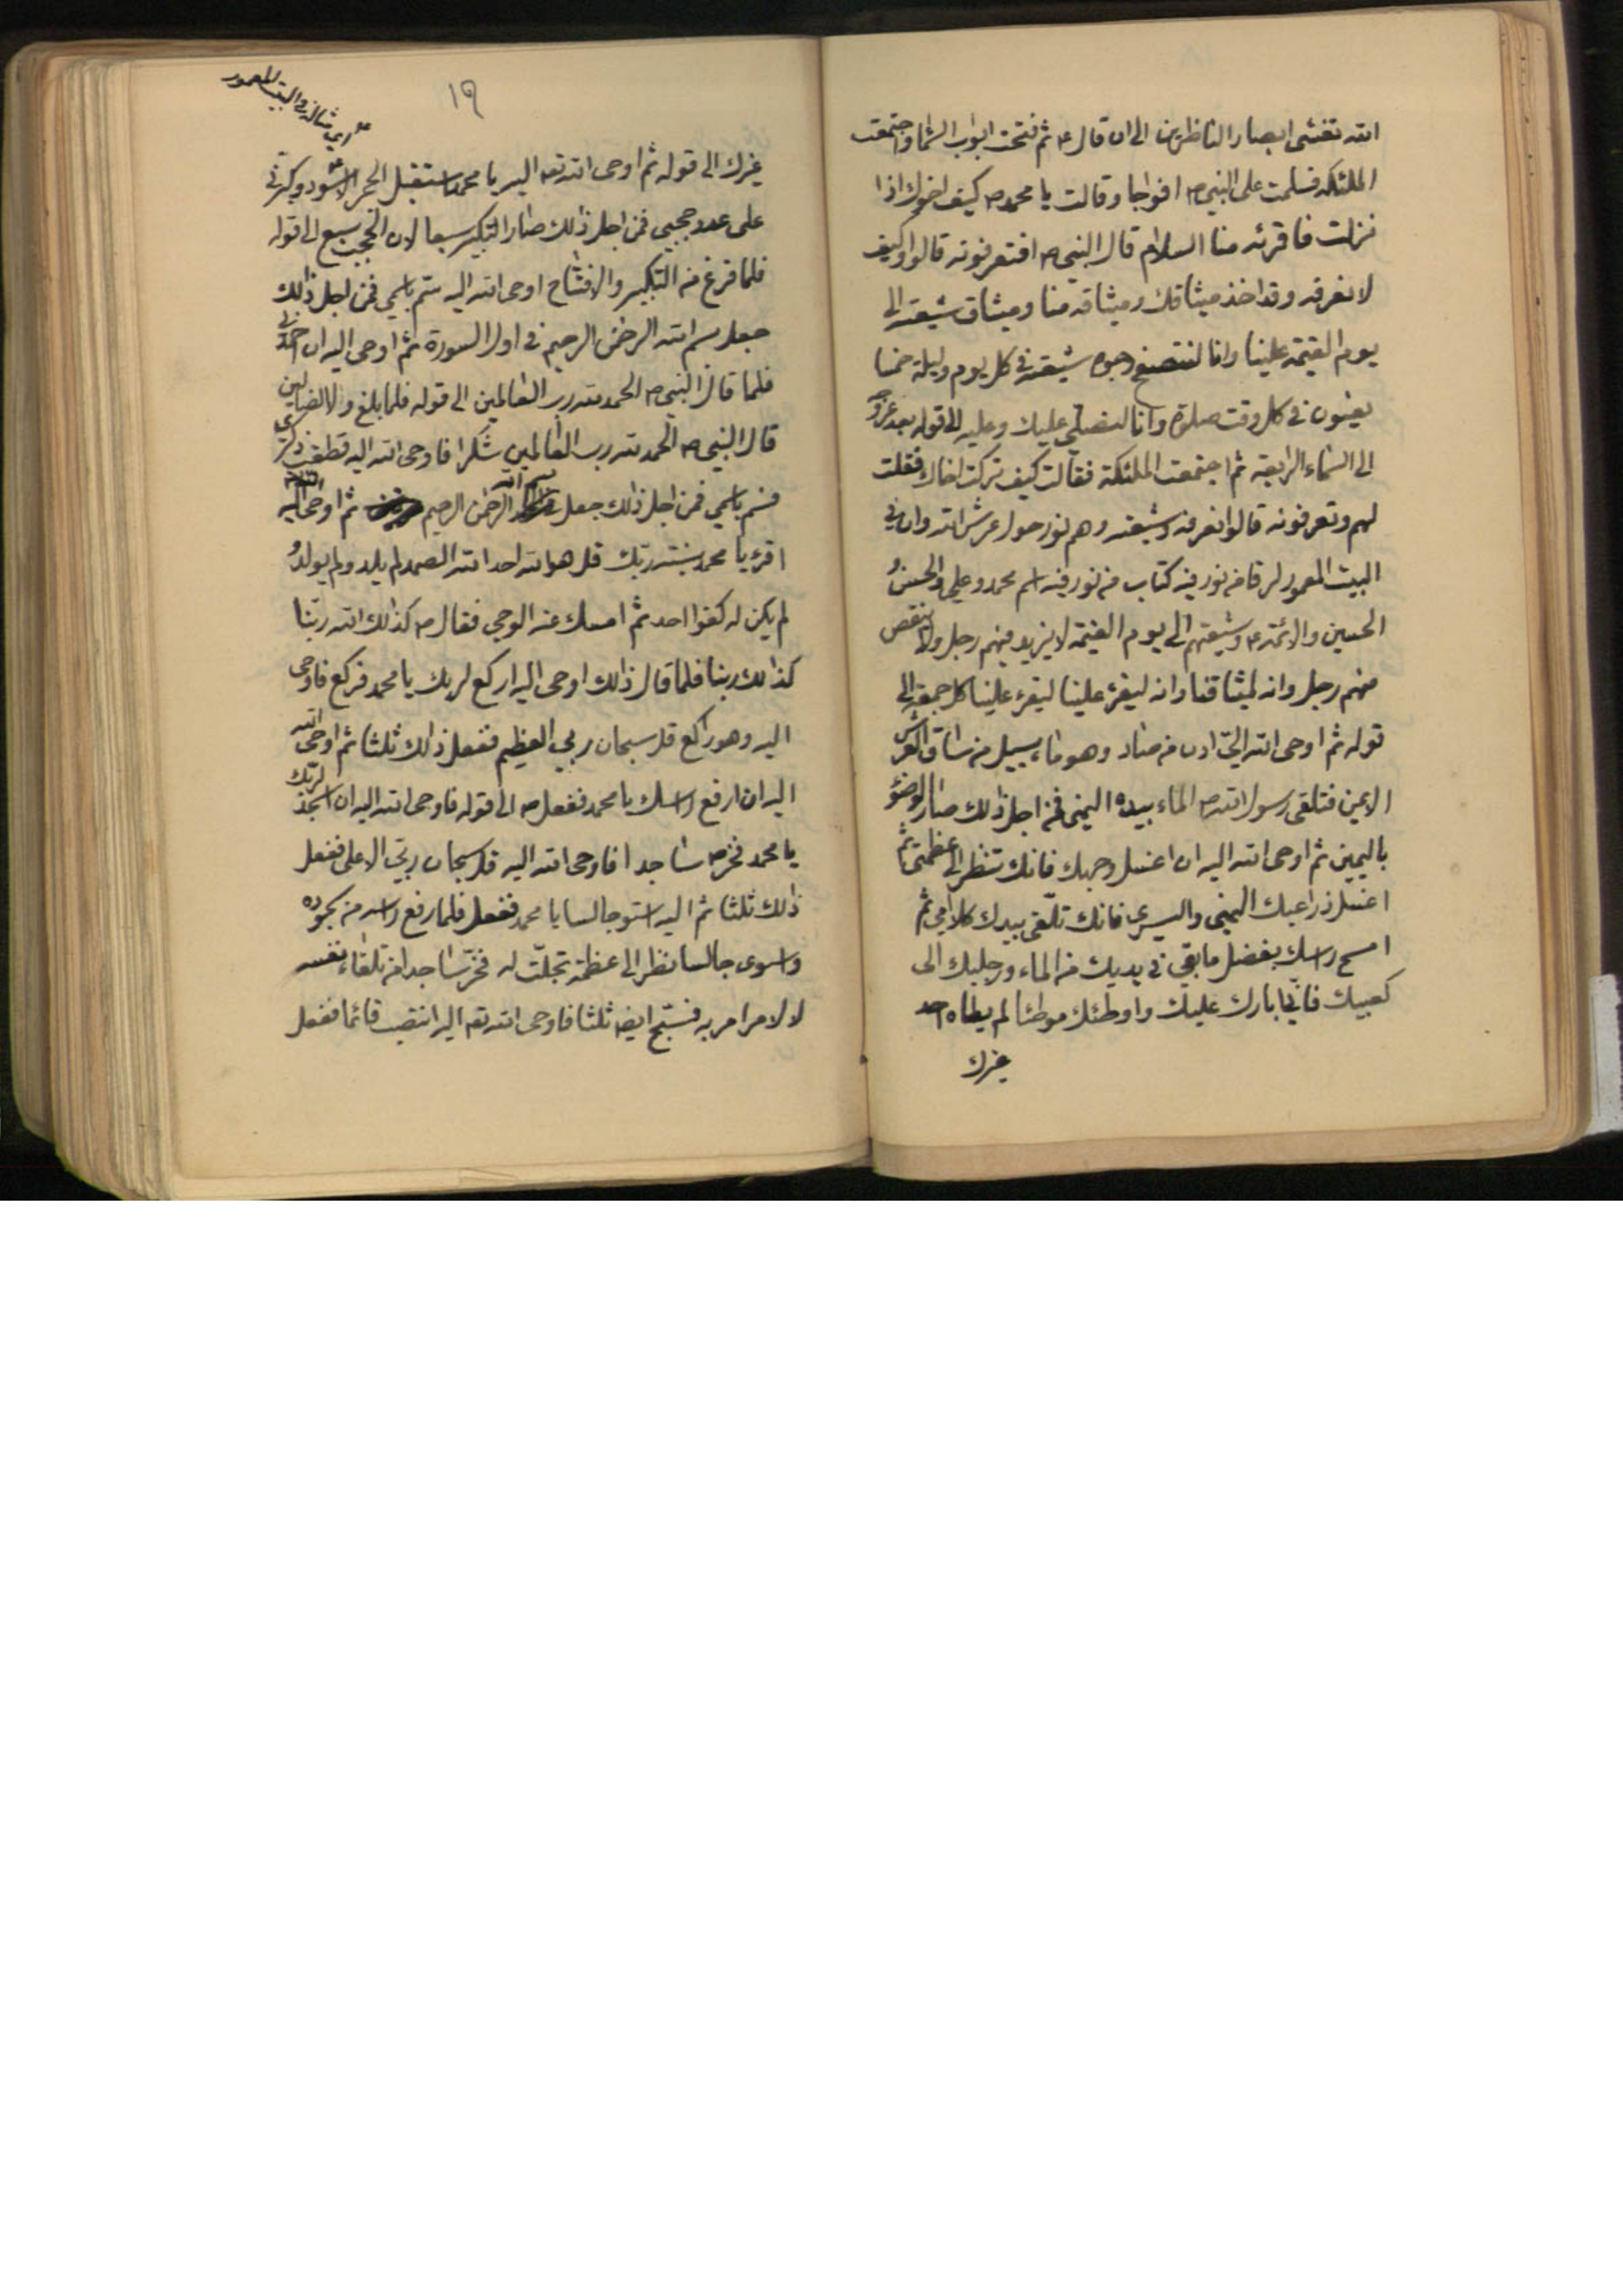 الله تغشى ابصار الناظرين الى ان قال ع ثم فتحت ابواب السماء واجتمعت
الملئكة فسلمت على النبي ص افواجا وقالت يا محمد ص كيف اخوك اذا
نزلت فاقرئه منا السلام قال النبي ص افتعرفونه قالوا وكيف
لا نعرفه وقد اخذ ميثاقك وميثاقه منا وميثاق شيعته الى
يوم القيمة علينا وانا لنتصفح وجوه شيعته في كل يوم وليلة خمسا
يعنون في كل وقت صلوة وانا لنصلي عليك وعليه الى قوله بعد عروجه
الى السماء الرابعة ثم اجتمعت الملئكة فقالت كيف تركت اخاك فقلت
لهم وتعرفونه قالوا نعرفه وشيعته وهم نور حول عرش الله وان في
البيت المعمور لرقا من نور فيه كتاب من نور فيه اسم محمد وعلي والحسن و
الحسين والائمة ع وشيعتهم الى يوم القيمة لا يزيد فيهم رجل ولا ينقص
منهم رجل وانه لميثاقنا وانه ليقرء علينا ليقرء علينا كل جمعة الى
قوله ثم اوحى الله اليّ ادن من صاد وهو ماء يسيل من ساق العرش
الايمن فتلقى رسول الله ص الماء بيده اليمنى فمن اجل ذلك صار الوضوء
باليمين ثم اوحى الله اليه ان اغسل وجهك فانك تنظر الى عظمتي ثم
اغسل ذراعيك اليمنى واليسرى فانك تلقى بيدك كلامي ثم
امسح راسك بفضل ما بقي في يديك من الماء ورجليك الى
كعبيك فاني ابارك عليك واوطئك موطئا لم يطاه احد
غيرك
١٩
اي شاذ في البيت المعمور
غيرك الى قوله ثم اوحى الله تعه اليه يا محمد استقبل الحجر الاسود وكبرني
على عدد حجبي فمن اجل ذلك صار التكبير سبعا لان الحجب سبع الى قوله
فلما فرغ من التكبير والافتتاح اوحى الله اليه سم باسمي فمن اجل ذلك
جعل بسم الله الرحمن الرحيم في اول السورة ثم اوحى اليه ان احمدني
فلما قال النبي ص الحمد لله رب العالمين الى قوله فلما بلغ ولا الضالين
قال النبي ص الحمد لله رب العالمين شكرا فاوحى الله اليه قطعت ذكري
فسم باسمي فمن اجل ذلك جعل بسم الله الرحمن الرحيم ثم اوحى الله اليه
اقرء يا محمد نسبة ربك قل هو الله احد الله الصمد لم يلد ولم يولد و
لم يكن له كفوا احد ثم امسك عنه الوحي فقال ص كذلك الله ربنا
كذلك ربنا فلما قال ذلك اوحى اليه اركع لربك يا محمد فركع فاوحى
اليه وهو راكع قل سبحان ربي العظيم ففعل ذلك ثلثا ثم اوحى الله
اليه ان ارفع راسك يا محمد ففعل ص الى قوله فاوحى الله اليه ان اسجد لربك
يا محمد فخر ص ساجدا فاوحى الله اليه قل سبحان ربي الاعلى ففعل
ذلك ثلثا ثم اليه استو جالسا يا محمد ففعل فلما رفع راسه من سجوده
واسوى جالسا نظر الى عظمة تجلت له فخر ساجدا من تلقاء نفسه
لا لامر امر به فسبح ايضه ثلثا فاوحى الله تعه اليه انتصب قائما ففعل